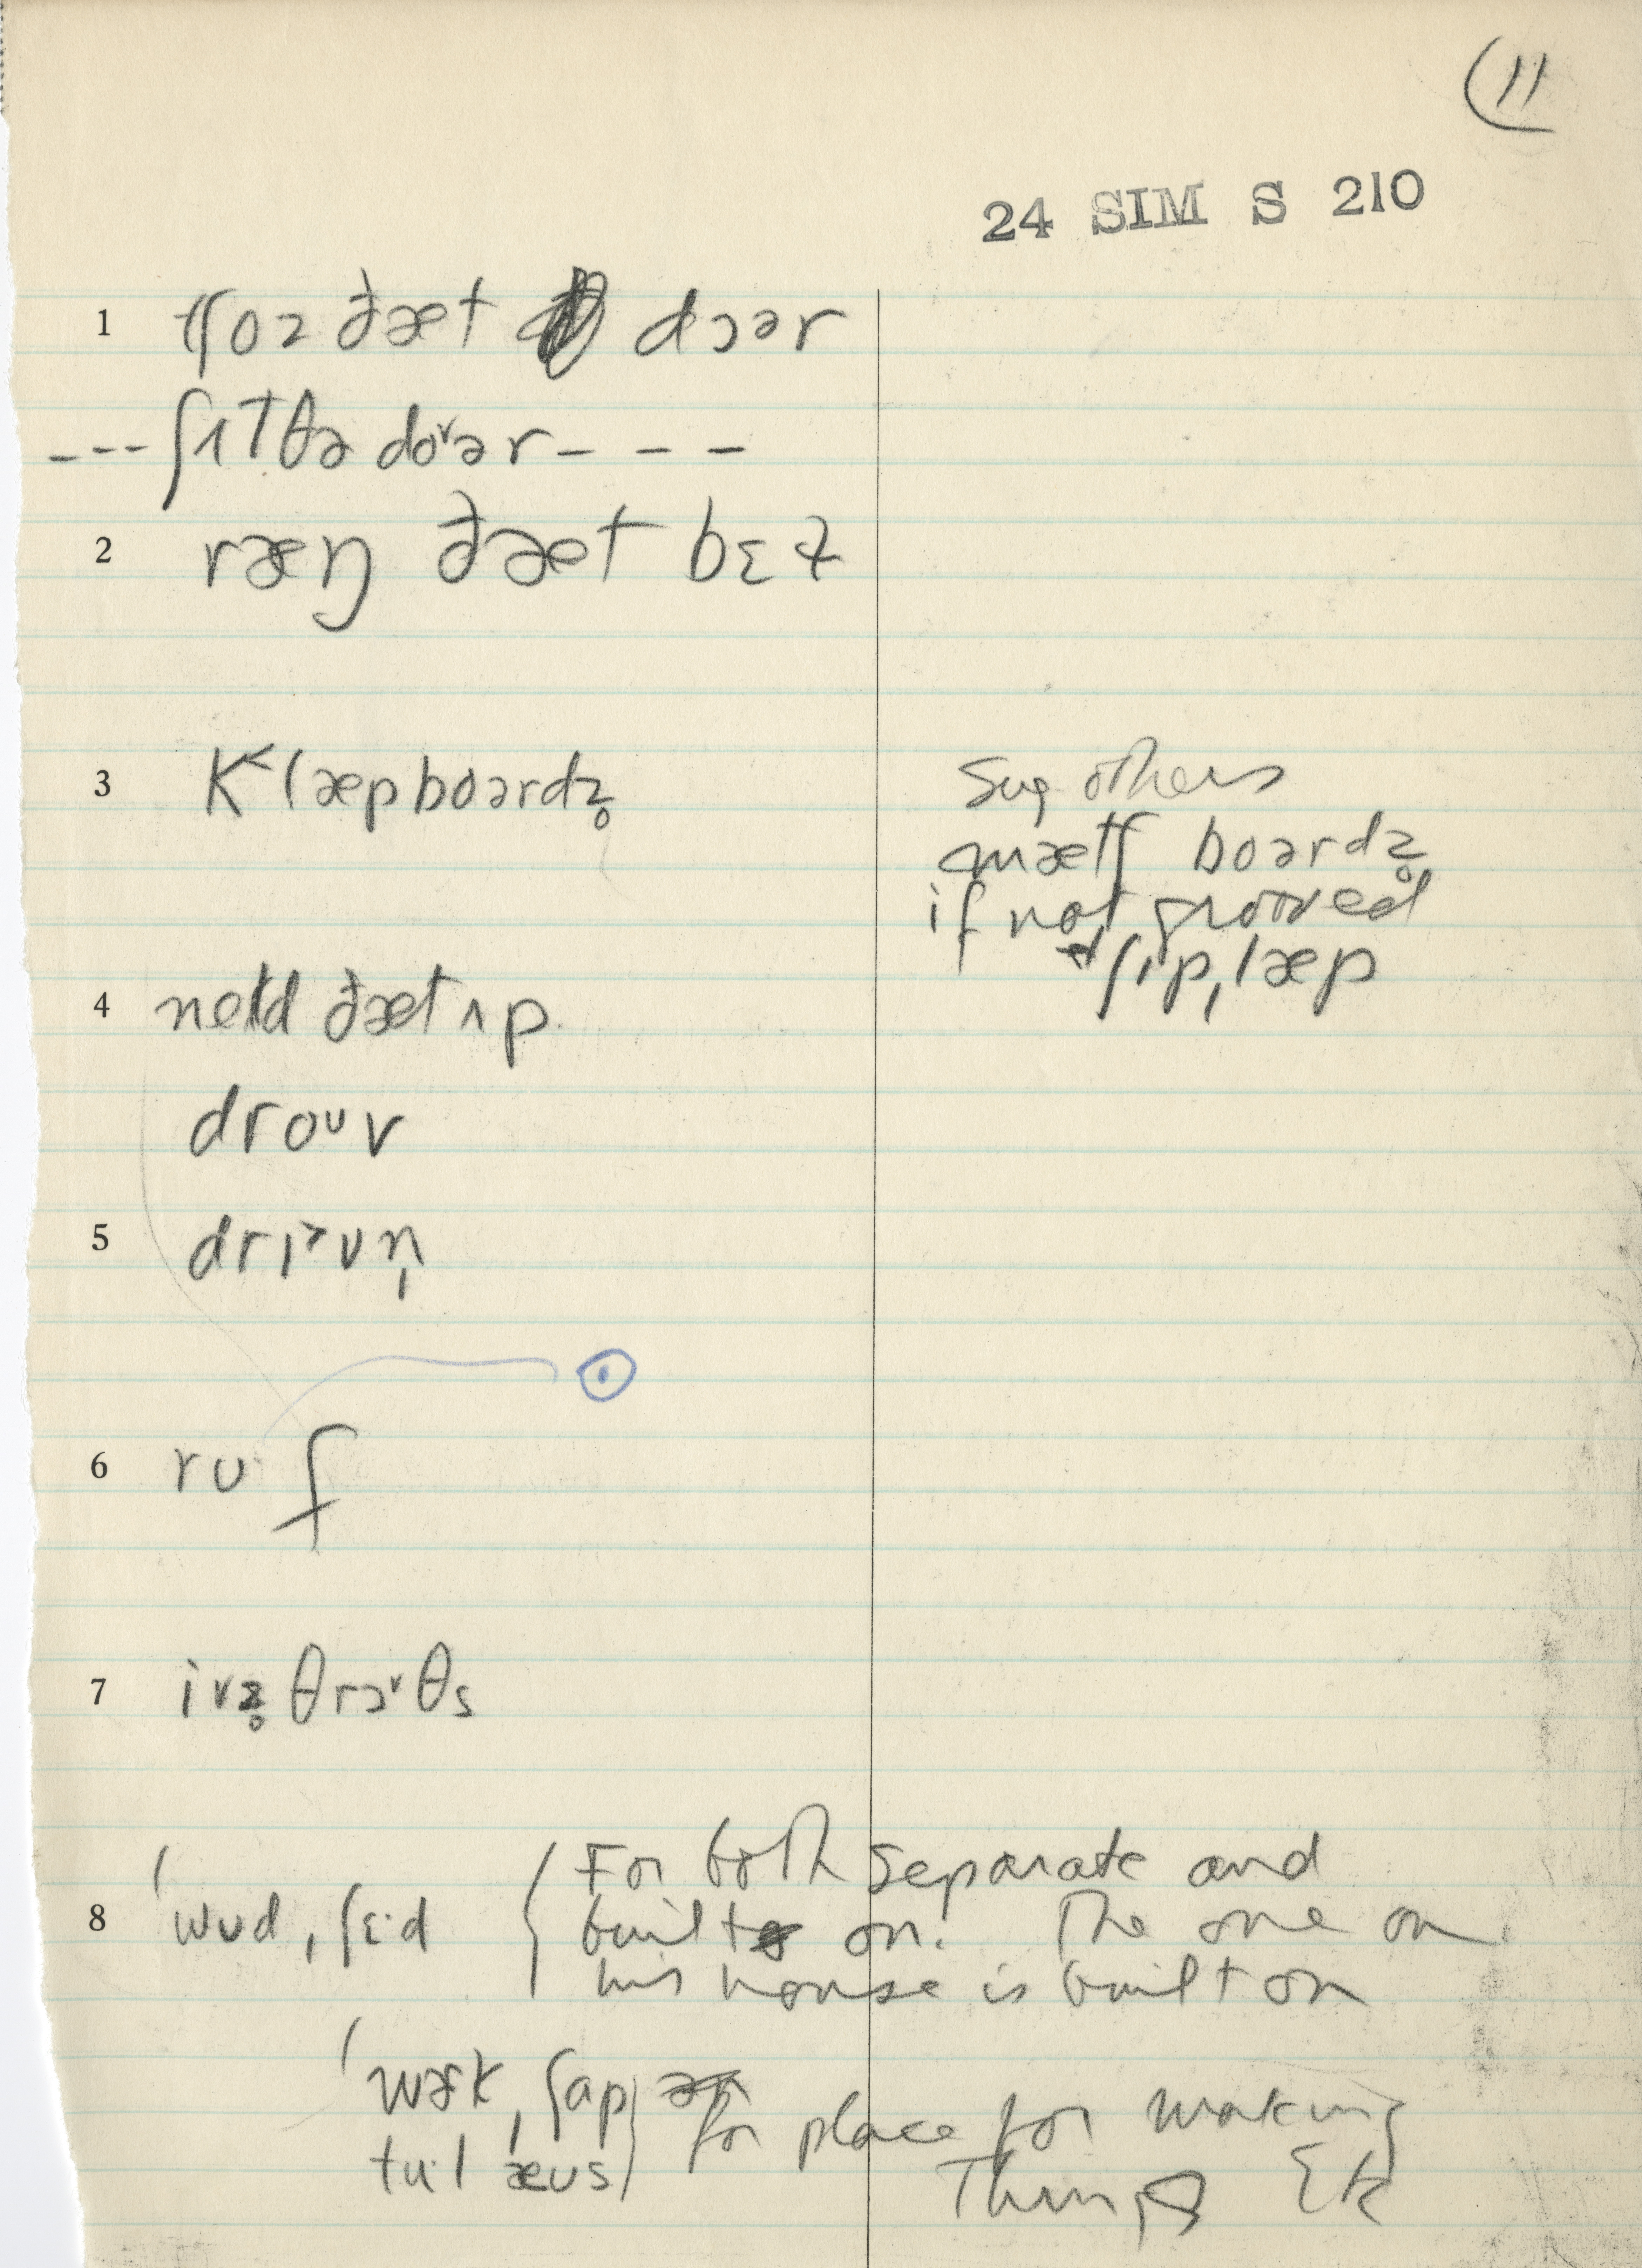 11
24 SIM S 210
1 tʃoz ðæt dɔər
--- ʃɪT θə do˅ər - - -
2 ræŋ ðæt bɛɫ
3 K˂læpboərdz̥
Sug. others
mætʃ boərdz̥
if not grooved
ʃɪpˌlæp
4 neɪld ðæt ʌp
droᴜv
5 drɪ˃vn̩
6 rʊf
7 ivz̥ θrɔ˅θs
8 ˈwʊdˌʃɛ·d { For both separate and
built on. The one on
his house is built on
ˈwɝkˌʃap } for place for making
tu·l æʊs } Things Etc